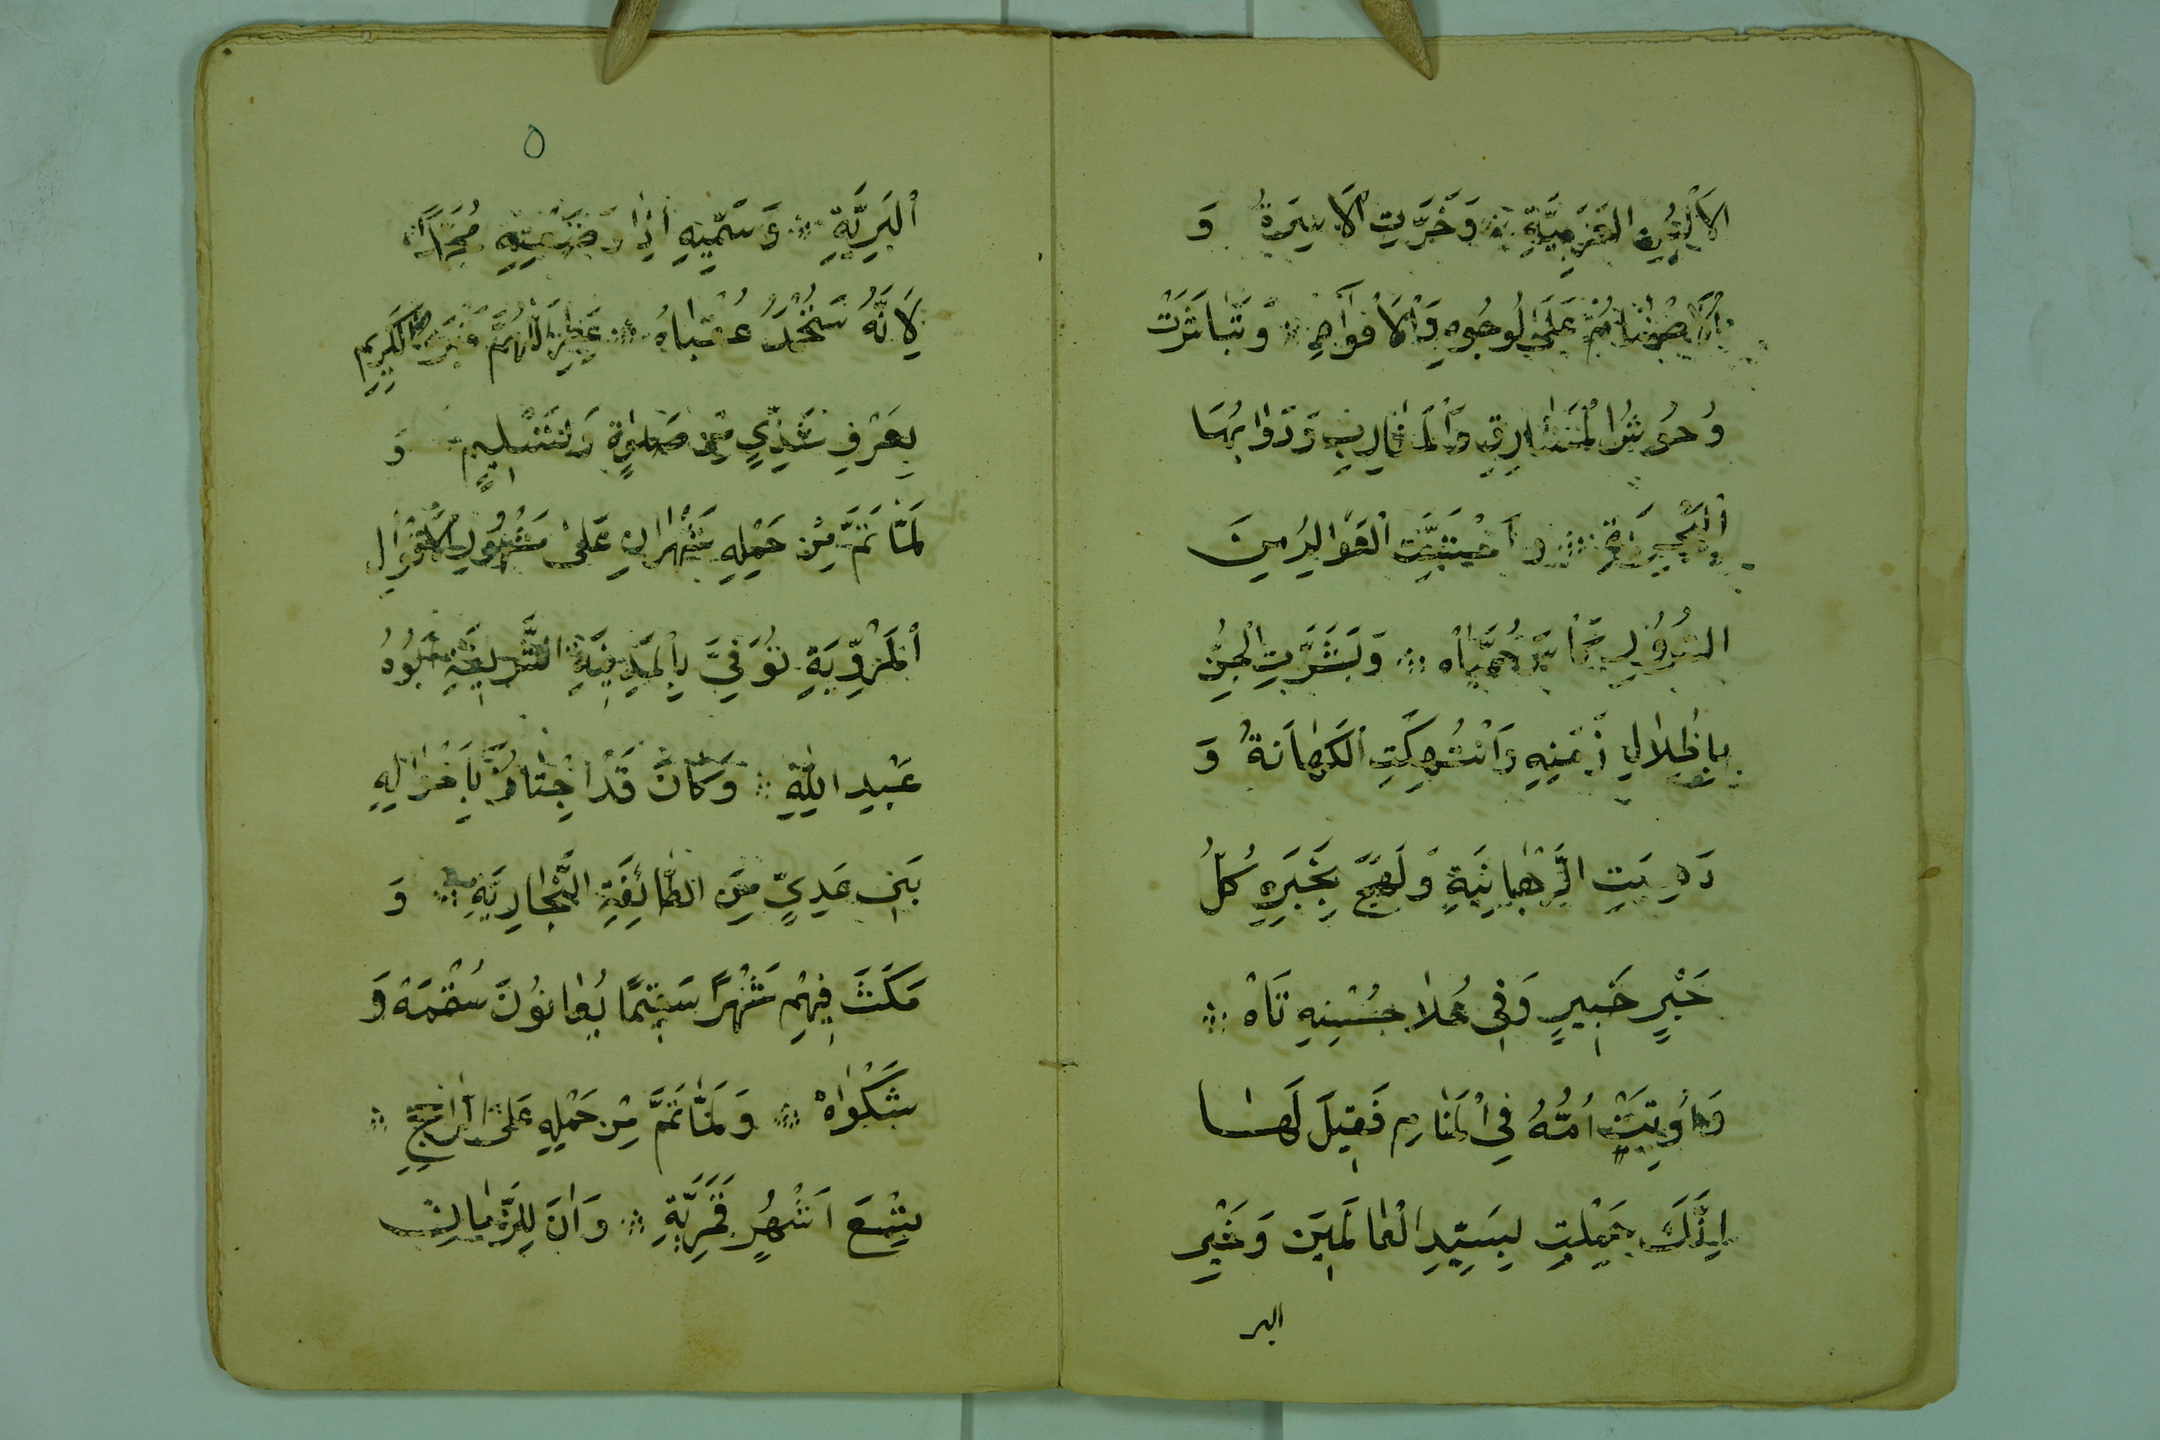 الاَلْسُنِ العَرَبِيَّةِ وَخَرَّتِ الاَسِرَةُ وَ
اْلاَصْنَامُ عَلَى الْوُجُوهِ وَاْلاَفْوَاهِ وَتَبَاشَرَتْ
وُحُوشُ الْمَشَارِقِ وَالْمَغَارِبِ وَدَوَابُّهَا
اْلبَحْرِيَّةِ وَاحْتَسَتِ الْعَوَالِمُ مِنَ
السُّرُورِ كَأْسَ حُمَيَّاهُ وَبَشَّرَتِ الْجِنُّ
بِاِظْلَالِ زَمَنِهِ وَانْتُهِكَتِ الْكَهَانَةُ وَ
رَهِبَتِ الرَّهْبَانِيَةِ وَلَهِجَ بِخَبَرِهِ كُلُّ
حَبْرٍ خَبِيرٍ وَفِى حُلَا حُسْنِهِ تَاهْ
وَاُوتِيَتْ اُمُّهُ فِى الْمَنَامِ فَقِيلَ لَهَا
اِنَّكِ حَمَلْتِ بِسَيِّدِ الْعَالَمِينَ وَخَيْرِ
البر
٥
اْلبَرِيَّةِ وَسَمِّيهِ اِذَا وَضَعْتِيهِ مُحَمَّدًا
لِاَنَّهُ سَتُحْمَدُ عُقْبَاهُ عَطِّرِ اللّٰهُمَّ قَبْرَهُ الْكَرِيم
بِعَرْفٍ شَذِيٍّ مِنْ صَلٰوةٍ وَتَسْلِيمٍ وَ
لَمَّا تَمَّ مِنْ حَمْلِهِ شَهْرَانِ عَلَى مَشْهُورِ الْاَقْوَالِ
اْلمَرْوِيَةِ تُوُفِّيَ بِالْمَدِينَةِ الشَّرِيفَةِ اَبُوهُ
عَبْدِ اللّٰهِ وَكَانَ قَدْ اجْتَازَ بِاَخْوَالِهِ
بَنِى عَدِيٍّ مِنَ الطَّائِفَةِ النَّجَّارِيَةِ وَ
مَكَثَ فِيهِمْ شَهْرًا سَقِيمًا يُعَانُونَ سُقْمَهُ وَ
شَكْوَاهْ وَلَمَّا تَمَّ مِنْ حَمْلِهِ عَلَى الرَّاجِحِ
تِسْعَ اَشْهُرٍ قَمَرِيَّةِ وَاٰنَ لِلزَّمَانِ